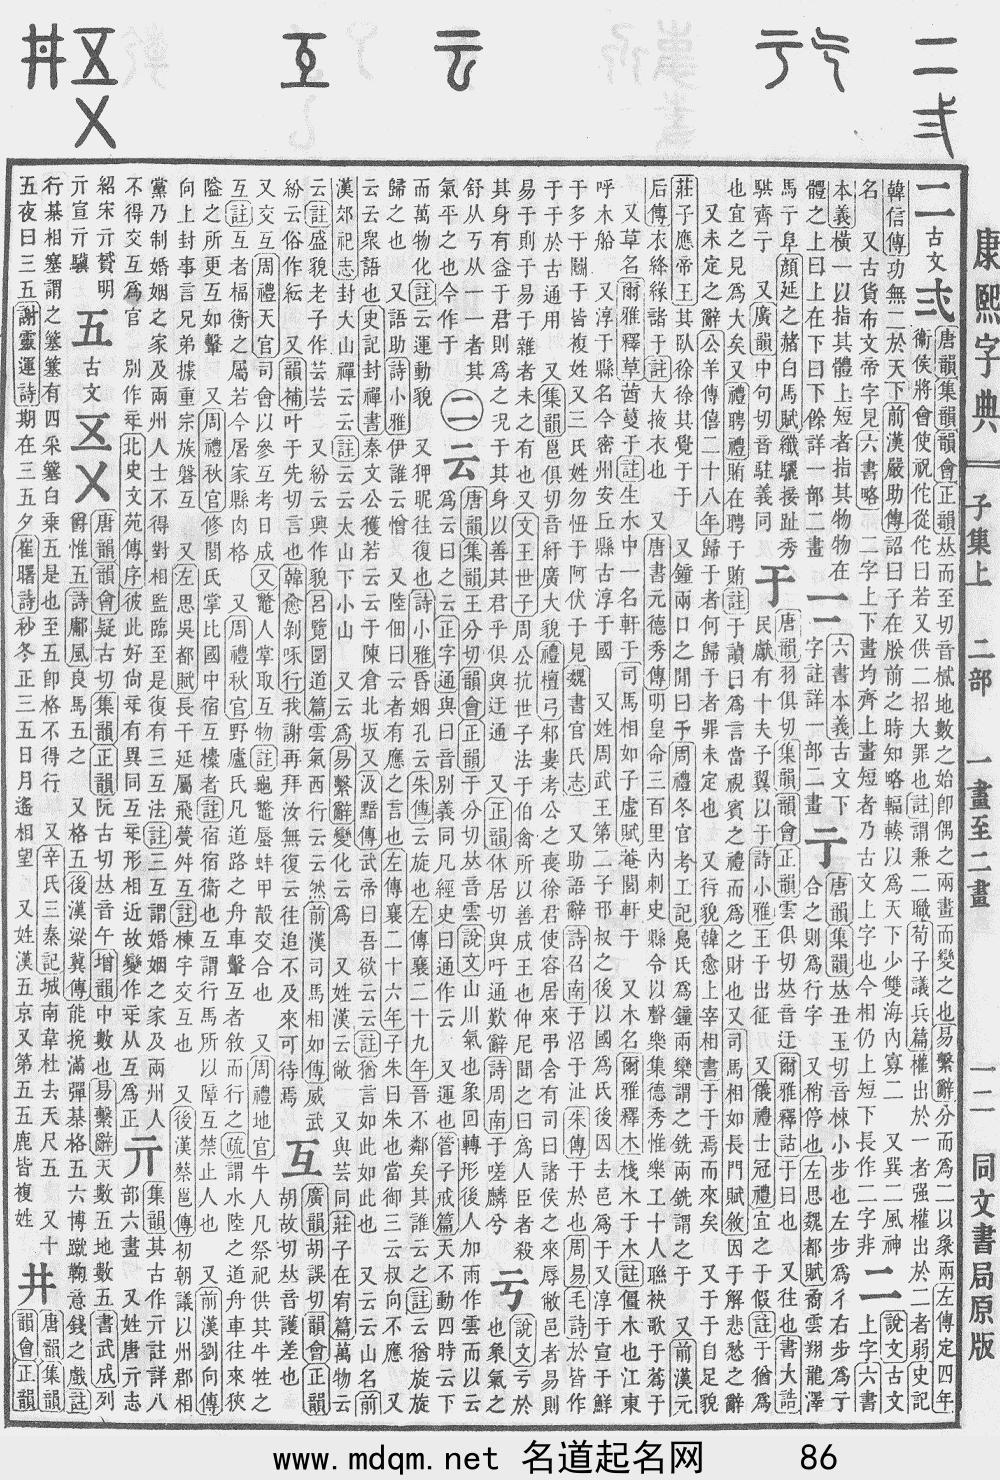 康熙字典 子集上 二部 一畫至二畫 一二 同文書局原版
二 古文 弍 唐韻集韻韻會正韻𠀤而至切音樲地數之始卽偶之兩畫而變之也易繫辭分而爲二以象兩左傳定四年
衞侯將會使祝佗從佗曰若又供二招大罪也註謂兼二職荀子議兵篇權出於一者强權出於二者弱史記
韓信傳功無二於天下前漢嚴助傳詔曰子在朕前之時知略輻輳以爲天下少雙海內寡二 又異二風神
名 又古貨布文帝字見六書略 二字上下畫均齊上畫短者乃古文上字也今相仍上短下長作二字非 二 說文古文
上字六書
本義橫一以指其體上短者指其物物在
體之上曰上在下曰下餘詳一部二畫 𠄟 六書本義古文下
字註詳一部二畫 亍 唐韻集韻𠀤丑玉切音楝小步也左步爲彳右步爲亍
合之則爲行字 又稍停也左思魏都賦矞雲翔龍澤
馬亍阜顏延之赭白馬賦纖驪接趾秀
騏齊亍 又廣韻中句切音駐義同 于 唐韻羽俱切集韻韻會正韻雲俱切𠀤音迂爾雅釋詁于曰也 又往也書大誥
民獻有十夫子翼以于詩小雅王于出征 又儀禮士冠禮宜之于假註于猶爲
也宜之見爲大矣又禮聘禮賄在聘于賄註于讀曰爲言當視賓之禮而爲之財也又司馬相如長門賦敘因于解悲愁之辭
又未定之辭公羊傳僖二十八年歸于者何歸于者罪未定也 又行貌韓愈上宰相書于于焉而來矣 又于于自足貌
莊子應帝王其臥徐徐其覺于于 又鐘兩口之閒曰于周禮冬官考工記鳧氏爲鐘兩欒謂之銑兩銑謂之于 又前漢元
后傳衣絳緣諸于註大掖衣也 又唐書元德秀傳明皇命三百里內刺史縣令以聲樂集德秀惟樂工十人聯袂歌于蔿于
又草名爾雅釋草茜蔓于註生水中一名軒于司馬相如子虛賦菴閭軒于 又木名爾雅釋木棧木于木註僵木也江東
呼木船 又淳于縣名今密州安丘縣古淳于國 又姓周武王第二子邘叔之後以國爲氏後因去邑爲于又淳于宣于鮮
于多于闐于皆複姓又三氏姓勿忸于阿伏于見魏書官氏志 又助語辭詩召南于沼于沚朱傳于於也周易毛詩於皆作
于于於古通用 又集韻邕俱切音紆廣大貌禮檀弓邾婁考公之喪徐君使容居來弔含有司曰諸侯之來辱敝邑者易則
易于則于易于雜者未之有也又文王世子周公抗世子法于伯禽所以善成王也仲尼聞之曰爲人臣者殺
其身有益于君則爲之況于其身以善其君乎俱與迂通 又正韻休居切與吁通歎辭詩周南于嗟麟兮 亏 說文亏於
也象氣之
舒从丂从一一者其
氣平之也今作于 ㊁ 云 唐韻集韻王分切韻會正韻于分切𠀤音雲說文山川氣也象回轉形後人加雨作雲而以云
爲云曰之云正字通與曰音別義同凡經史曰通作云 又運也管子戒篇天不動四時云下
而萬物化註云運動貌 又狎昵往復也詩小雅昏姻孔云朱傳云旋也左傳襄二十九年晉不鄰矣其誰云之註云猶旋旋
歸之也 又語助詩小雅伊誰云憎 又陸佃曰云者有應之言也左傳襄二十六年子朱曰朱也當御三云叔向不應 又
云云衆語也史記封禪書秦文公獲若云于陳倉北坂又汲黯傳武帝曰吾欲云云註猶言如此如此也 又云云山名前
漢郊祀志封大山禪云云註云云太山下小山 又云爲易繫辭變化云爲 又姓漢云敞 又與芸同莊子在宥篇萬物云
云註盛貌老子作芸芸 又紛云興作貌呂覽圜道篇雲氣西行云云然前漢司馬相如傳威武
紛云俗作紜 又韻補叶于先切言也韓愈剝啄行我謝再拜汝無復云往追不及來可待焉 互 廣韻胡誤切韻會正韻
胡故切𠀤音護差也
又交互周禮天官司會以參互考日成又鼈人掌取互物註龜鼈蜃蚌甲殼交合也 又周禮地官牛人凡祭祀供其牛牲之
互註互者楅衡之屬若今屠家縣肉格 又周禮秋官野廬氏凡道路之舟車轚互者敘而行之疏謂水陸之道舟車往來狹
隘之所更互如轚 又周禮秋官修閭氏掌比國中宿互㯓者註宿宿衞也互謂行馬所以障互禁止人也 又前漢劉向傳
向上封事言兄弟據重宗族磐互 又左思吳都賦長干延屬飛甍舛互註棟宇交互也 又後漢蔡邕傳初朝議以州郡相
黨乃制婚姻之家及兩州人士不得對相監臨至是復有三互法註三互謂婚姻之家及兩州人
不得交互爲官 別作㸦北史文苑傳序彼此好尙㸦有異同互㸦形相近故變作㸦从互爲正 亓 集韻其古作亓註詳八
部六畫 又姓唐亓志
紹宋亓贇明
亓宣亓驥 五 古文 㐅 唐韻韻會疑古切集韻正韻阮古切𠀤音午增韻中數也易繫辭天數五地數五書武成列
爵惟五詩鄘風良馬五之 又格五後漢梁冀傳能挽滿彈棊格五六博蹴鞠意錢之戲註
行棊相塞謂之簺簺有四采簺白乘五是也至五卽格不得行 又辛氏三秦記城南韋杜去天尺五 又十
五夜曰三五謝靈運詩期在三五夕崔曙詩秒冬正三五日月遙相望 又姓漢五京又第五五鹿皆複姓 井 唐韻集韻
韻會正韻
www.mdqm.net 名道起名网 86